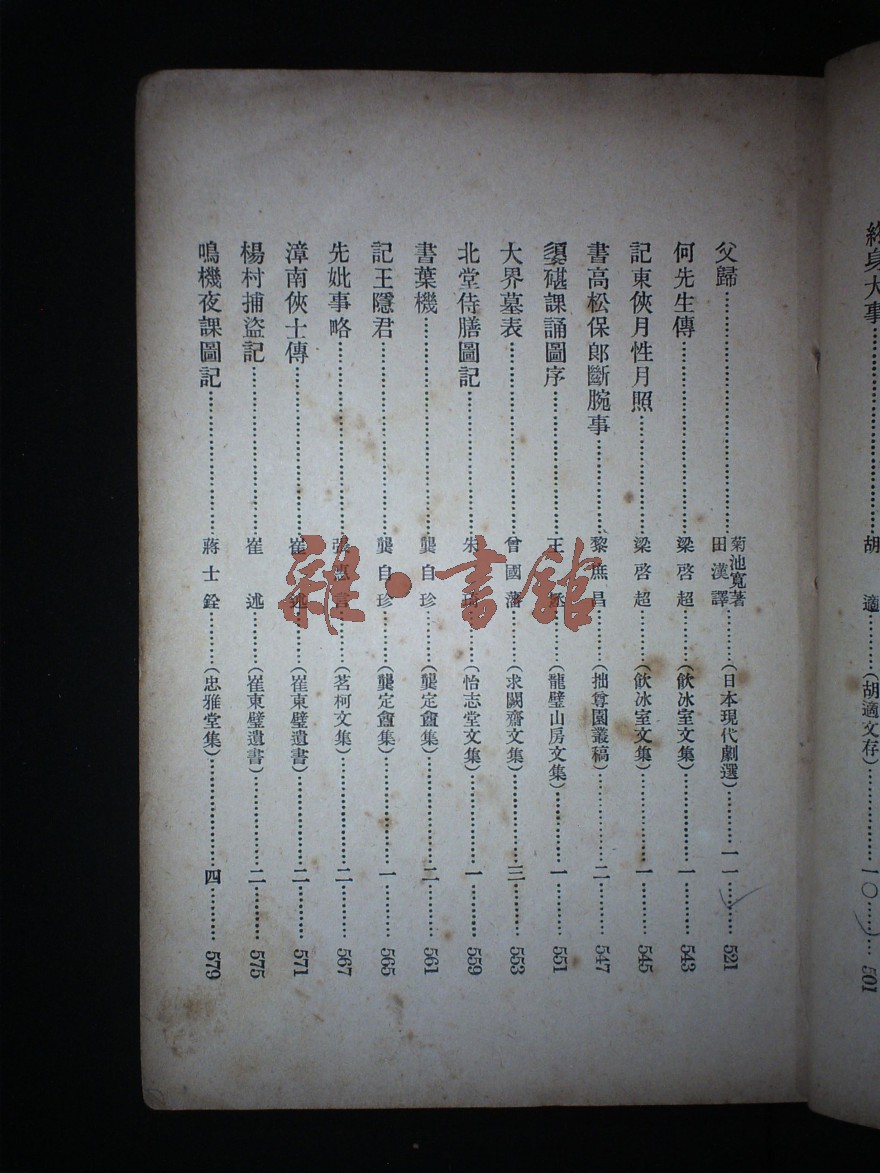 終身大事……胡適……(胡適文存)……一〇……501
父歸……菊池寬著 田漢譯……(日本現代劇選)……一一……521
何先生傳……梁啓超……(飲冰室文集)……一……543
記東俠月性月照……梁啓超……(飲冰室文集)……一……545
書高松保郎斷腕事……黎庶昌……(拙尊園叢稿)……二……547
媭碪課誦圖序……王拯……(龍壁山房文集)……一……551
大界墓表……曾國藩……(求闕齋文集)……三……553
北堂侍膳圖記……朱琦……(怡志堂文集)……一……559
書葉機……龔自珍……(龔定盦集)……二……561
記王隱君……龔自珍……(龔定盦集)……一……565
先妣事略……張惠言……(茗柯文集)……二……567
漳南俠士傳……崔述……(崔東壁遺書)……二……571
楊村捕盜記……崔述……(崔東壁遺書)……二……575
鳴機夜課圖記……蔣士銓……(忠雅堂集)……四……579
雜·書館